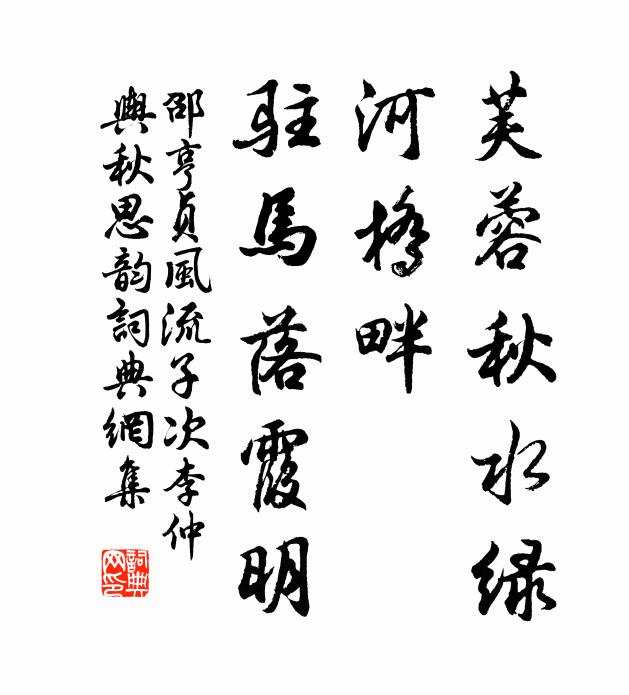 芙蓉秋水绿
河橋畔
駐馬落霞明
邵亨貞風流子次李仲
輿秋思韵詞典網集
詞典网印